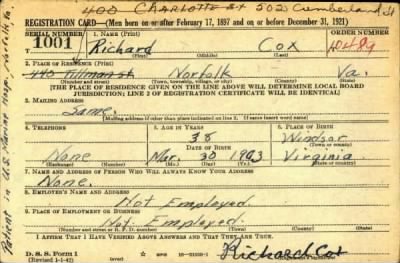 400 Charlotte St 502 Cumberland St
REGISTRATION CARD—(Men born on or after February 17, 1897 and on or before December 31, 1921)
SERIAL NUMBER 1. NAME (Print) ORDER NUMBER
1001 Richard Cox 10489
(First) (Middle) (Last)
2. PLACE OF RESIDENCE (Print)
440 Norfolk Va.
(Number and street) (Town, township, village, or city) (County) (State)
[THE PLACE OF RESIDENCE GIVEN ON THE LINE ABOVE WILL DETERMINE LOCAL BOARD
JURISDICTION; LINE 2 OF REGISTRATION CERTIFICATE WILL BE IDENTICAL]
3. MAILING ADDRESS
Same.
[Mailing address if other than place indicated on line 2. If same insert word same]
4. TELEPHONE 5. AGE IN YEARS 6. PLACE OF BIRTH
38 Windsor
DATE OF BIRTH (Town or county)
None Mar. 30 1903 Virginia
(Exchange) (Number) (Mo.) (Day) (Yr.) (State or country)
7. NAME AND ADDRESS OF PERSON WHO WILL ALWAYS KNOW YOUR ADDRESS
None.
8. EMPLOYER'S NAME AND ADDRESS
Not Employed.
9. PLACE OF EMPLOYMENT OR BUSINESS
Not Employed.
(Number and street or R. F. D. number) (Town) (County) (State)
I AFFIRM THAT I HAVE VERIFIED ABOVE ANSWERS AND THAT THEY ARE TRUE.
D. S. S. Form 1
(Revised 1-1-42) (over) Richard Cox
(Registrant's signature)
Patient in U.S. Marine Hosp. Norfolk, Va.